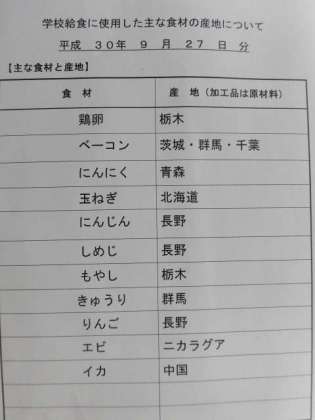 学校給食に使用した主な食材の産地について
平成 30年 9 月 27 日 分
【主な食材と産地】
食 材 産 地（加工品は原材料）
鶏卵 栃木
ベーコン 茨城・群馬・千葉
にんにく 青森
玉ねぎ 北海道
にんじん 長野
しめじ 長野
もやし 栃木
きゅうり 群馬
りんご 長野
エビ ニカラグア
イカ 中国